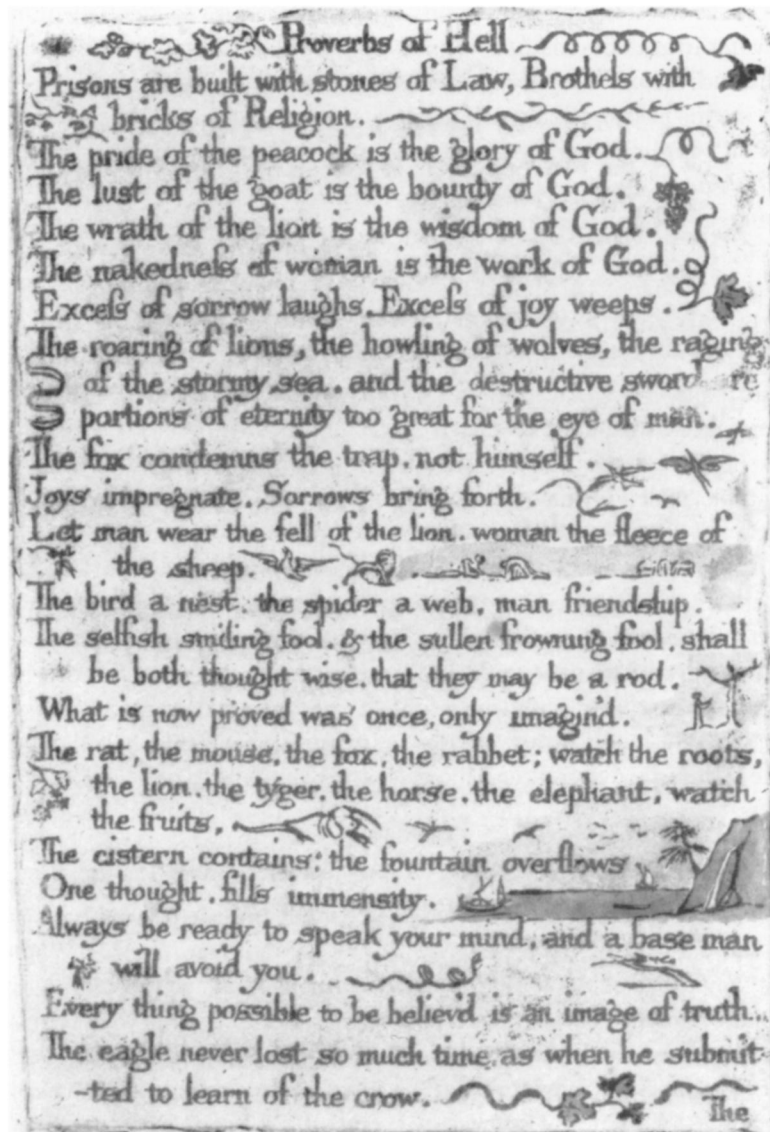 Proverbs of Hell
Prisons are built with stones of Law, Brothels with
bricks of Religion.
The pride of the peacock is the glory of God.
The lust of the goat is the bounty of God.
The wrath of the lion is the wisdom of God.
The nakedneſs of woman is the work of God.
Exceſs of sorrow laughs. Exceſs of joy weeps.
The roaring of lions, the howling of wolves, the raging
of the stormy sea. and the destructive sword
portions of eternity too great for the eye of man.
The fox condemns the trap, not himself.
Joys impregnate. Sorrows bring forth.
Let man wear the fell of the lion. woman the fleece of
the sheep.
The bird a nest, the spider a web, man friendship.
The selfish smiling fool. & the sullen frowning fool. shall
be both thought wise. that they may be a rod.
What is now proved was once, only imagin'd.
The rat, the mouse, the fox, the rabbet; watch the roots,
the lion, the tyger, the horse, the elephant, watch
the fruits.
The cistern contains: the fountain overflows
One thought. fills immensity.
Always be ready to speak your mind, and a base man
will avoid you.
Every thing possible to be believ'd is an image of truth.
The eagle never lost so much time, as when he submit-
-ted to learn of the crow.
The